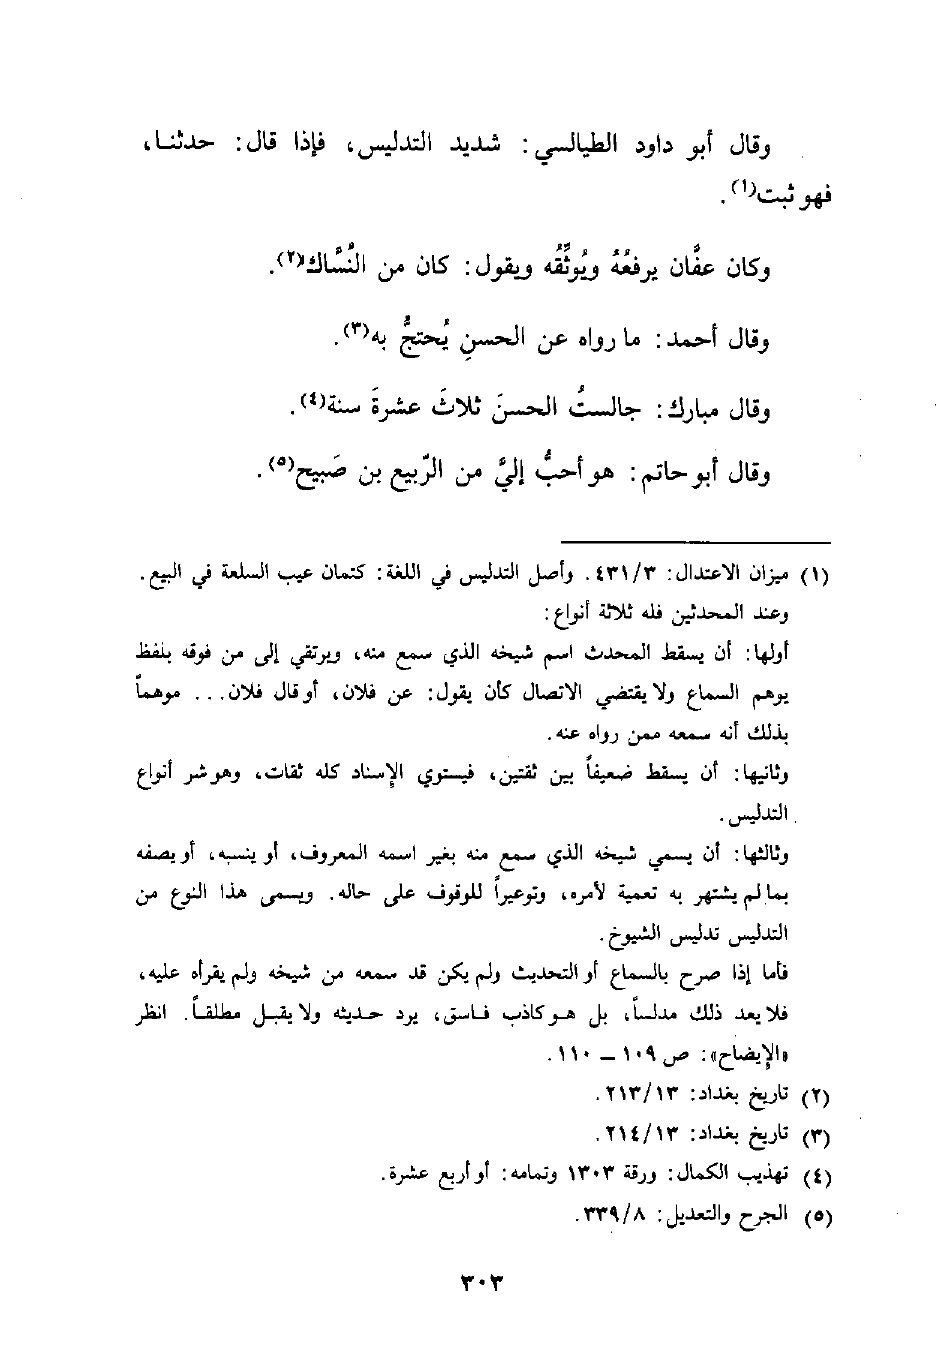 وقال أبو داود الطيالسي: شديد التدليس، فإذا قال: حدثنا،
فهو ثبت(١).
وكان عفَّان يرفعُهُ ويُوثِّقه ويقول: كان من النُسَّاك(٢).
وقال أحمد: ما رواه عن الحسنِ يُحتجُّ به(٣).
وقال مبارك: جالستُ الحسنَ ثلاثَ عشرةَ سنة(٤).
وقال أبو حاتم: هو أحبُّ إليَّ من الرّبيع بن صَبيح(٥).
(١) ميزان الاعتدال: ٤٣١/٣. وأصل التدليس في اللغة: كتمان عيب السلعة في البيع.
وعند المحدثين فله ثلاثة أنواع:
أولها: أن يسقط المحدث اسم شيخه الذي سمع منه، ويرتقي إلى من فوقه بلفظ
يوهم السماع ولا يقتضي الاتصال كأن يقول: عن فلان، أو قال فلان... موهماً
بذلك أنه سمعه ممن رواه عنه.
وثانيها: أن يسقط ضعيفاً بين ثقتين، فيستوي الإسناد كله ثقات، وهو شر أنواع
التدليس.
وثالثها: أن يسمي شيخه الذي سمع منه بغير اسمه المعروف، أو ينسبه، أو يصفه
بما لم يشتهر به تعمية لأمره، وتوعيراً للوقوف على حاله. ويسمى هذا النوع من
التدليس تدليس الشيوخ.
فأما إذا صرح بالسماع أو التحديث ولم يكن قد سمعه من شيخه ولم يقرأه عليه،
فلا يعد ذلك مدلساً، بل هو كاذب فاسق، يرد حديثه ولا يقبل مطلقاً. انظر
«الإيضاح»: ص ١٠٩ – ١١٠.
(٢) تاريخ بغداد: ٢١٣/١٣.
(٣) تاريخ بغداد: ٢١٤/١٣.
(٤) تهذيب الكمال: ورقة ١٣٠٣ وتمامه: أو أربع عشرة.
(٥) الجرح والتعديل: ٣٣٩/٨.
٣٠٣